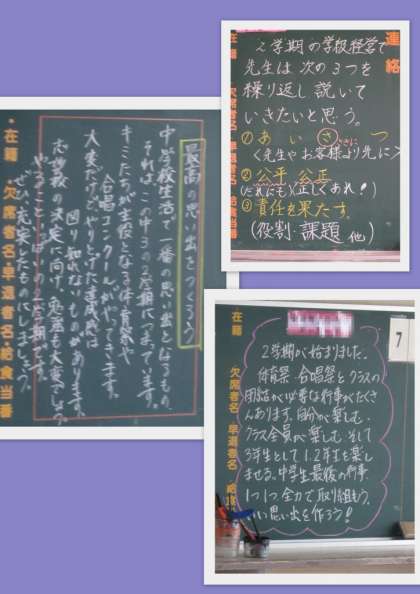 最高の思い出をつくろう
中学校生活で一番の思い出となるもの、
それは、この中3の2学期につまっています。
キミたちが主役となる体育祭や
合唱コンクールがやってきます。
大変だけどやりとげた達成感は
図り知れないものがあります。
志望校の決定に向け、勉強も大変でしょう
やることいっぱいの2学期です。
ぜひ、充実したものにしましょう。
・在籍・欠席者名・早退者名・給食当番
連絡
2学期の学級経営で
先生は次の3つを
繰り返し説いて
いきたいと思う。
①あいさつ
<先生やお客様より先に>
②公平 公正
(だれにも)(正しくあれ!)
③責任を果たす。
(役割・課題 他)
在籍 欠席者名 早退者名 給食当番
7
2学期が始まりました。
体育祭、合唱祭とクラスの
団結が必要な行事がたくさ
んあります。自分が楽しむ、
クラス全員が楽しむ、そして
3年生として1,2年生を楽し
ませる。中学生最後の行事
1つ1つ全力で取り組もう。
いい思い出を作ろう!
在籍 欠席者名 早退者名 給食